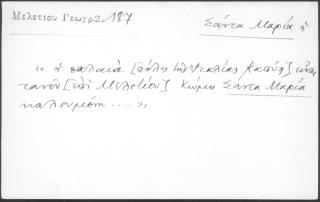 Μελετίου Γεωγρ2, 187
Σάντα Μαρία ἡ
« ἡ παλαιὰ [πόλις τῆς Ἰταλίας Καπύη] εἶναι
τανῦν [ἐπὶ Μελετίου] Κώμη Σάντα Μαρία
καλουμένη .... »